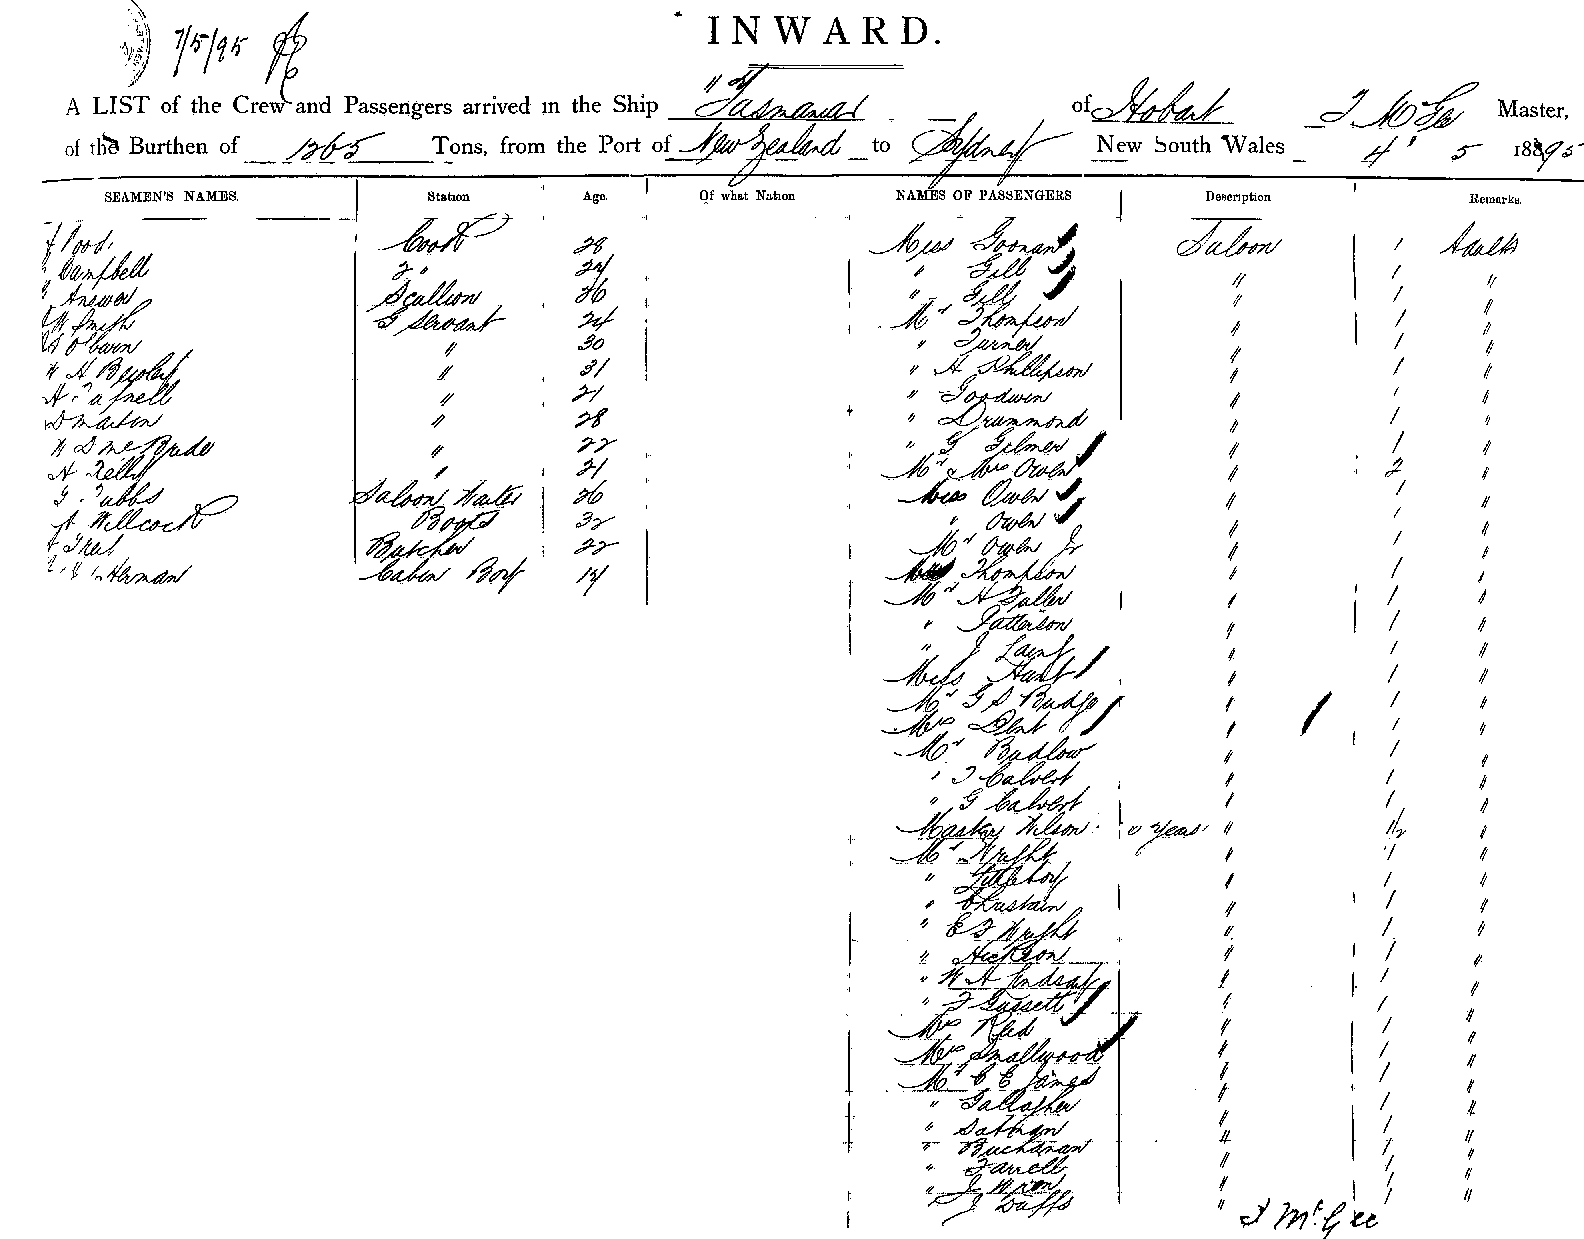 7/5/95
INWARD.
A LIST of the Crew and Passengers arrived in the Ship "Tasmania" of Hobart T McGee Master,
of the Burthen of 1265 Tons, from the Port of New Zealand to Sydney New South Wales 4' 5 1895
SEAMEN'S NAMES. Station Age. Of what Nation NAMES OF PASSENGERS Description Remarks.
Cook 28 Miss Goonan Saloon 1 Adults
Campbell 2" 24 " Gill " 1 "
Answer Scullion 26 " Gill " 1 "
W Smith G Servant 24 Mr Thompson " 1 "
" 30 " Turner " 1 "
W H " 31 " A Phillipson " 1 "
" 21 " Goodwin " 1 "
D Martin " 28 " Drummond " 1 "
W D McBride " 22 " G Gilmer " 1 "
A Kelly " 21 Mr & Mrs Owen " 2 "
G Tubbs Saloon Waiter 26 Miss Owen " 1 "
A Willcock Boots 32 " Owen " 1 "
Butcher 22 Mr Owen Jr " 1 "
Cabin Boy 14 Thompson " 1 "
Mr A Fuller " 1 "
" Patterson " 1 "
" J Laing " 1 "
Miss Hunt " 1 "
Mr G S Budge " 1 "
Mrs Dent " 1 "
Mr Budlow " 1 "
" T Calvert " 1 "
" G Calvert " 1 "
Master Wilson years " 1/2 "
Mr Wright " 1 "
" Littleboy " 1 "
" Christain " 1 "
" E T Wright " 1 "
" Hickson " 1 "
" W A Lindsay " 1 "
" F Gassett " 1 "
Mrs Reid " 1 "
Mrs Smallwood " 1 "
Mr C E James " 1 "
" Gallagher " 1 "
" " 1 "
" Buchanan " 1 "
" Farrell " 1 "
" J " 1 "
" J Duffs "
T McGee